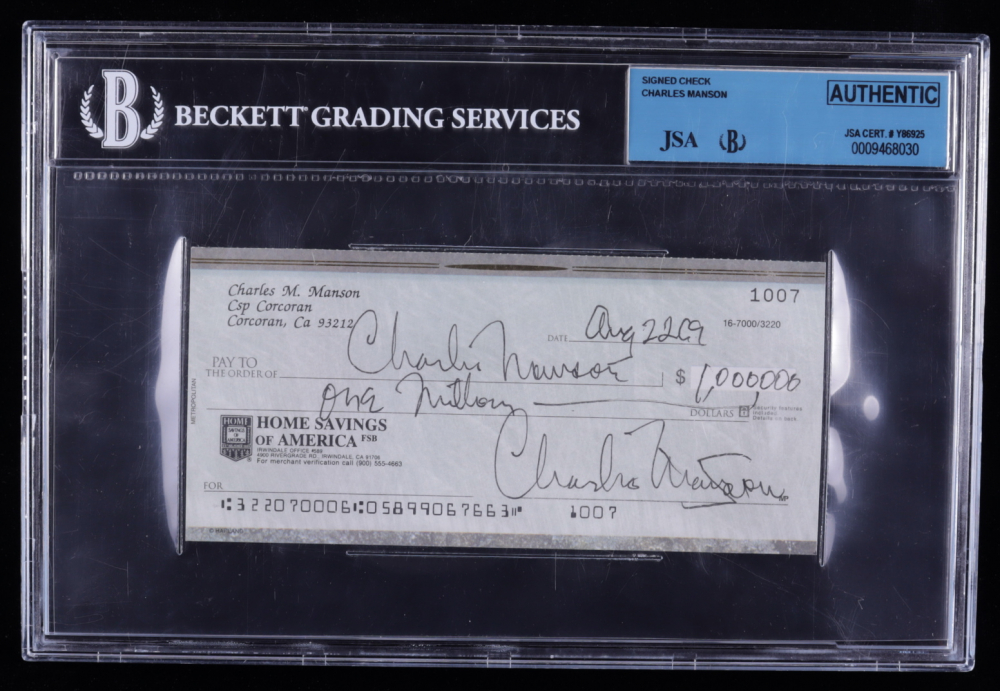 B
BECKETT GRADING SERVICES
SIGNED CHECK
CHARLES MANSON
AUTHENTIC
JSA
B
JSA CERT. # Y86925
0009468030
Charles M. Manson
Csp Corcoran
Corcoran, Ca 93212
1007
DATE Aug 22 69
16-7000/3220
PAY TO
THE ORDER OF Charles Manson $ 1,000,000
One Million DOLLARS
Security features
included.
Details on back.
METROPOLITAN
HOME
SAVINGS
OF
AMERICA
HOME SAVINGS
OF AMERICA FSB
IRWINDALE OFFICE #589
4900 RIVERGRADE RD., IRWINDALE, CA 91706
For merchant verification call (900) 555-4663
FOR
Charles Manson
MP
⑆322070006⑆0589906766 3⑈ 1007